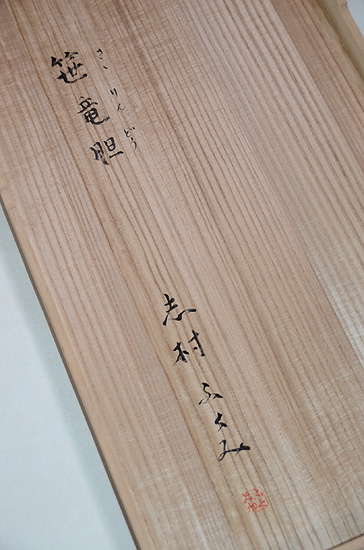 笹竜胆
さゝりんどう
志村ふくみ